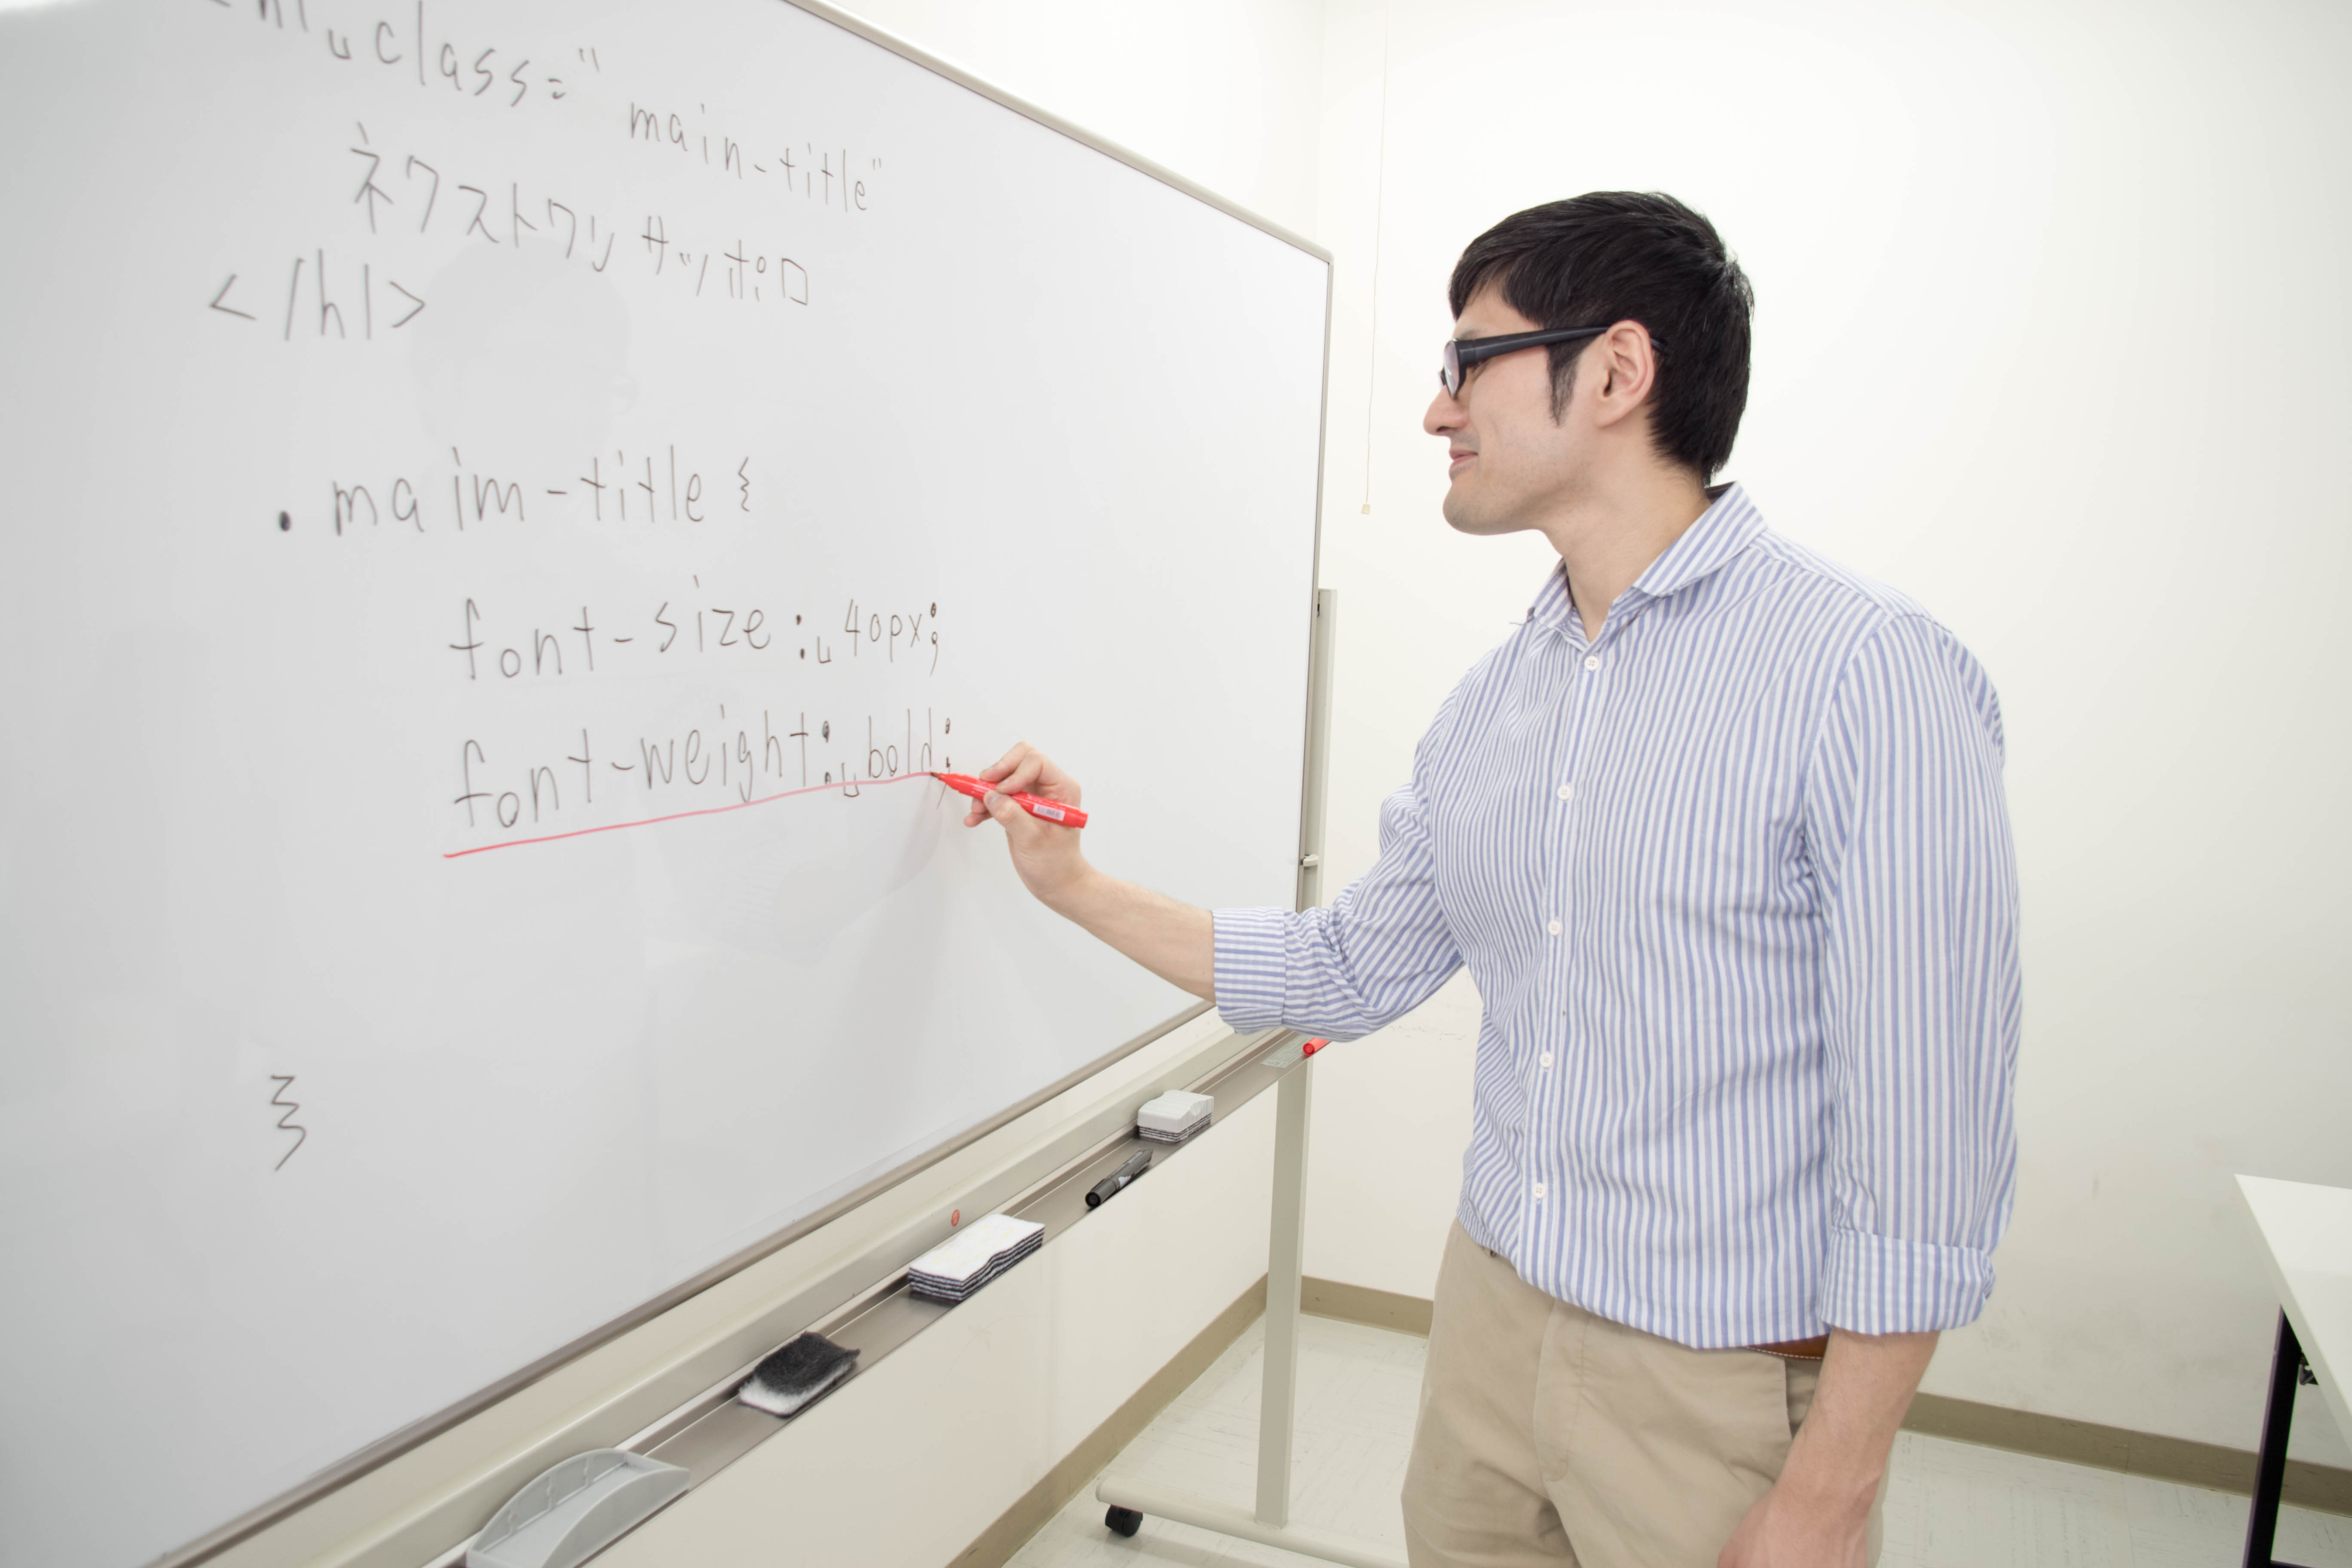 h1␣class="main-title"
ネクストワリサッポロ
</h1>
.maim-title {
font-size:␣40px;
font-weight:␣bold;
}